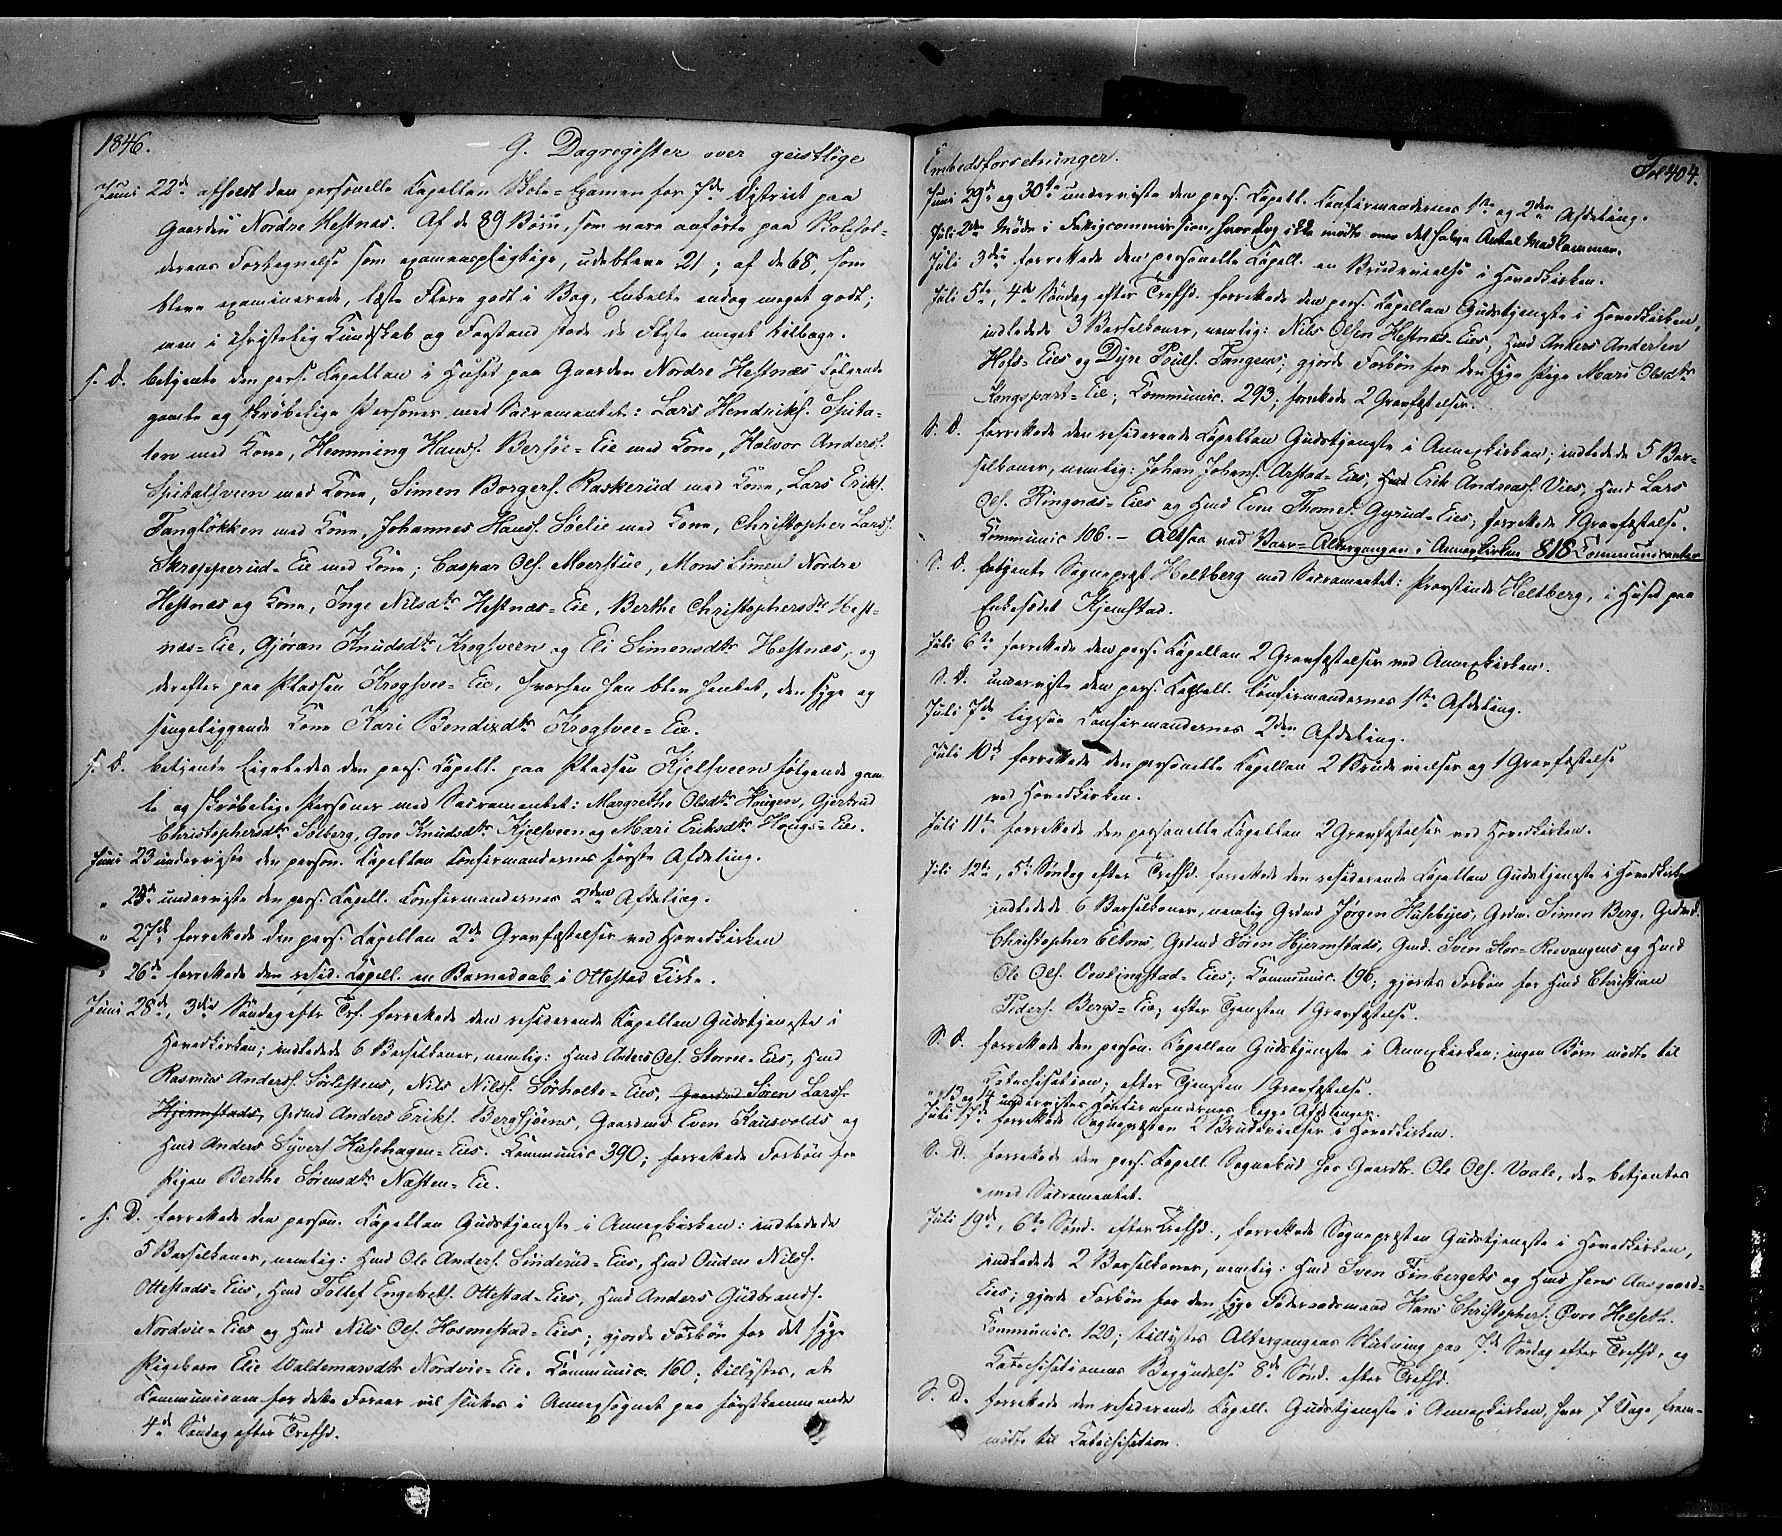 1846.
G. Dagregister over geistlige
Juni 22de afholdt den personelle Capellan Skole-Examen for 7de District paa
Gaarden Nordre Hestnæs. Af de 89 Börn, som vare anførte paa Skolehol-
derens Fortegnelse som examenspligtige, udebleve 21; af de 68, som
bleve examinerede, læste Flere godt i Bog, Enkelte endog meget godt;
men i christelig Kundskab og Forstand stode de Fleste meget tilbage.
S. D. betjente den pers. Capellan i Huset paa Gaarden Nordre Hestnæs følgende
gamle og skrøbelige Personer med Sacramentet: Lars Hendriks. Spita-
len med Kone, Hemming Hans. Bersøe-Eie med Kone, Halvor Anders.
Spitalsveen med Kone, Simen Borgers. Raskerud med Kone, Lars Eriks.
Tangløkken med Kone, Johannes Hans. Søelie med Kone, Christopher Lars.
Skrepperud-Eie med Kone; Caspar Ols. Moerstue, Mons Simen Nordre
Hestnæs og Kone, Inge Nilsdtr Hestnæs-Eie, Berthe Christophersdtr Hest-
næs-Eie, Gjøran Knudsdtr Krogsveen og Eli Simensdtr Hestnæs, og
derefter paa Pladsen Krogsvee-Eie, hvorhen han blev hentet, den syge og
sengeliggende Kone Kari Bendixdtr Krogsvee-Eie.
S. D. betjente ligeledes den pers. Capell. paa Pladsen Kjelsveen følgende gam-
le og skrøbelige Personer med Sacramentet: Margrethe Olsdtr Haugen, Gjertrud
Christophersdtr Solberg, Gro Knudsdtr Kjelsveen og Mari Eriksdtr Hougs-Eie.
Juni 23 underviste den person. Capellan Confirmandernes første Afdeling.
" 25de underviste den pers. Capell. Confirmandernes 2den Afdeling.
" 27de forrettede den pers. Capellan 2de Gravfæstelser ved Hovedkirken
" 26de forrettede den resid. Capell. en Barnedaab i Ottestad Kirke.
Juni 28de, 3die Søndag eftr Tref. forrettede den residerende Capellan Gudstjeneste i
Hovedkirken; indledede 6 Barselkoner, nemlig: Hmd Anders Ols. Storre-Eies, Hmd
Rasmus Anders. Sørlistens, Nils Nils. Sørholte-Eies, Gaardmd Søren Lars.
Hjermstads, Grdmd Anders Eriks. Bergsjøens, Gaardmd Even Kausvolds og
Hmd Anders Syvers. Hüsehagen-Eies. Communic 390; forrettede Forbøn for
Pigen Berthe Sørensdtr Næsten-Eie.
S. D. forrettede den person. Capellan Gudstjeneste i Annexkirken: indledede
5 Barselkoner, nemlig: Hmd Ole Anders. Sinderud-Eies, Hmd Ouden Nils.
Ottestads-Eies, Hmd Tollef Engebrets. Ottestad-Eies, Hmd Anders Gudbrands.
Nordvie-Eies og Hmd Nils Ols. Hosmestad-Eies; gjorde Forbøn for det syge
Pigebarn Elie Waldemarsdtr Nordvie-Eie. Communic. 160; tillystes, at
Communionen for dette Foraar vil sluttes i Annexsognet paa førstkommende
4de Søndag efter Trefhd.
Embedsforretninger.
Fol 404.
Juni 29de og 30te underviste den pers. Capell. Confirmandernes 1ste og 2den Afdeling.
Juli 2den Møde i Fattigcommission, hvor dog ikke mødte over det halve Antal Medlemmer.
Juli 3die forrettede den personelle Capell. en Brudevielse i Hovedkirken.
Juli 5te, 4de Søndag efter Trefhd. forrettede den pers. Capellan Gudstjeneste i Hovedkirken,
indledede 3 Barselkoner, nemlig: Nils Olsen Hestnæs-Eies, Hmd Anders Andersen
Hols-Eies og Dyre Pouls. Tangens; gjorde Forbøn for den syge Pige Mari Olsdtr
Kongspart-Eie; Communic. 293; forrettede 2 Gravfæstelser.
S. D. forrettede den residerende Capellan Gudstjeneste i Annexkirken; indledede 5 Bar-
selkoner, nemlig: Johan Johans. Arstad-Eies, Hmd Erik Andreas. Vies, Hmd Lars
Ols. Ringnæs-Eies og Hmd Even Thomes. Gyrud-Eies; forrettede 1 Gravfæstelse.
Communic 106. – Altsaa ved Vaar-Altergangen i Annexkirken 818 Communicanter
S. D. betjente Sognepræst Heltberg med Sacramentet: Provstinde Heltberg, i Huset paa
Enkesædet Hjemstad.
Juli 6te forrettede den pers. Capellan 2 Gravfæstelser ved Annexkirken.
S. D. underviste den pers. Capell. Confirmandernes 1ste Afdeling.
Juli 7de ligesaa Confirmandernes 2den Afdeling.
Juli 10de forrettede den personelle Capellan 2 Brudevielser og 1 Gravfæstelse
ved Hovedkirken.
Juli 11te forrettede den personelle Capellan 2 Gravfæstelser ved Hovedkirken.
Juli 12te, 5te Søndag efter Trefhd. forrettede den residerende Capellan Gudstjeneste i Hovedkirken
indledede 6 Barselkoner, nemlig Grdmd Jørgen Hüsebyes, Grdm. Simen Berg, Grdmd.
Christopher Eltons, Grdmd Søren Hjermstads, Gmd. Sven Stor-Revangens og Hmd
Ole Ols. Venlingstad-Eies; Communic. 196; gjordes Forbøn for Hmd Christian
Peders. Bergs-Eie; efter Tjenesten 1 Gravfæstelse.
S. D. forrettede den person. Capellan Gudstjeneste i Annexkirken; ingen Børn mødte til
Catechisation; efter Tjenesten 1 Gravfæstelse.
" 13 og 14 undervistes Confirmandernes begge Afdelinger.
Juli 17de forrettede Sognepræsten 2 Brudevielser i Hovedkirken.
S. D. forrettede den pers. Capell. Sognebud hos Gaardbr. Ole Ols. Vaale, der betjentes
med Sacramentet.
Juli 19de, 6te Sønd. efter Trefhd., forrettede Sognepræsten Gudstjeneste i Hovedkirken,
indledede 2 Barselkoner, nemlig: Hmd Sven Finbergets og Hmd Jens Aasgaard-
Eies; gjorde Forbøn for den syge Føderaadsmand Hans Christophers. Øvre Helset.
Communic. 120; tillystes Altergangens Slutning paa 7de Søndag efter Trefhd, og
Catechisationens Begyndelse 8de Sønd. efter Trefhd.
S. D. forrettede den residerende Capell. Gudstjeneste i Annexkirken, hvor 7 Unge frem-
mødte til Catechisation.